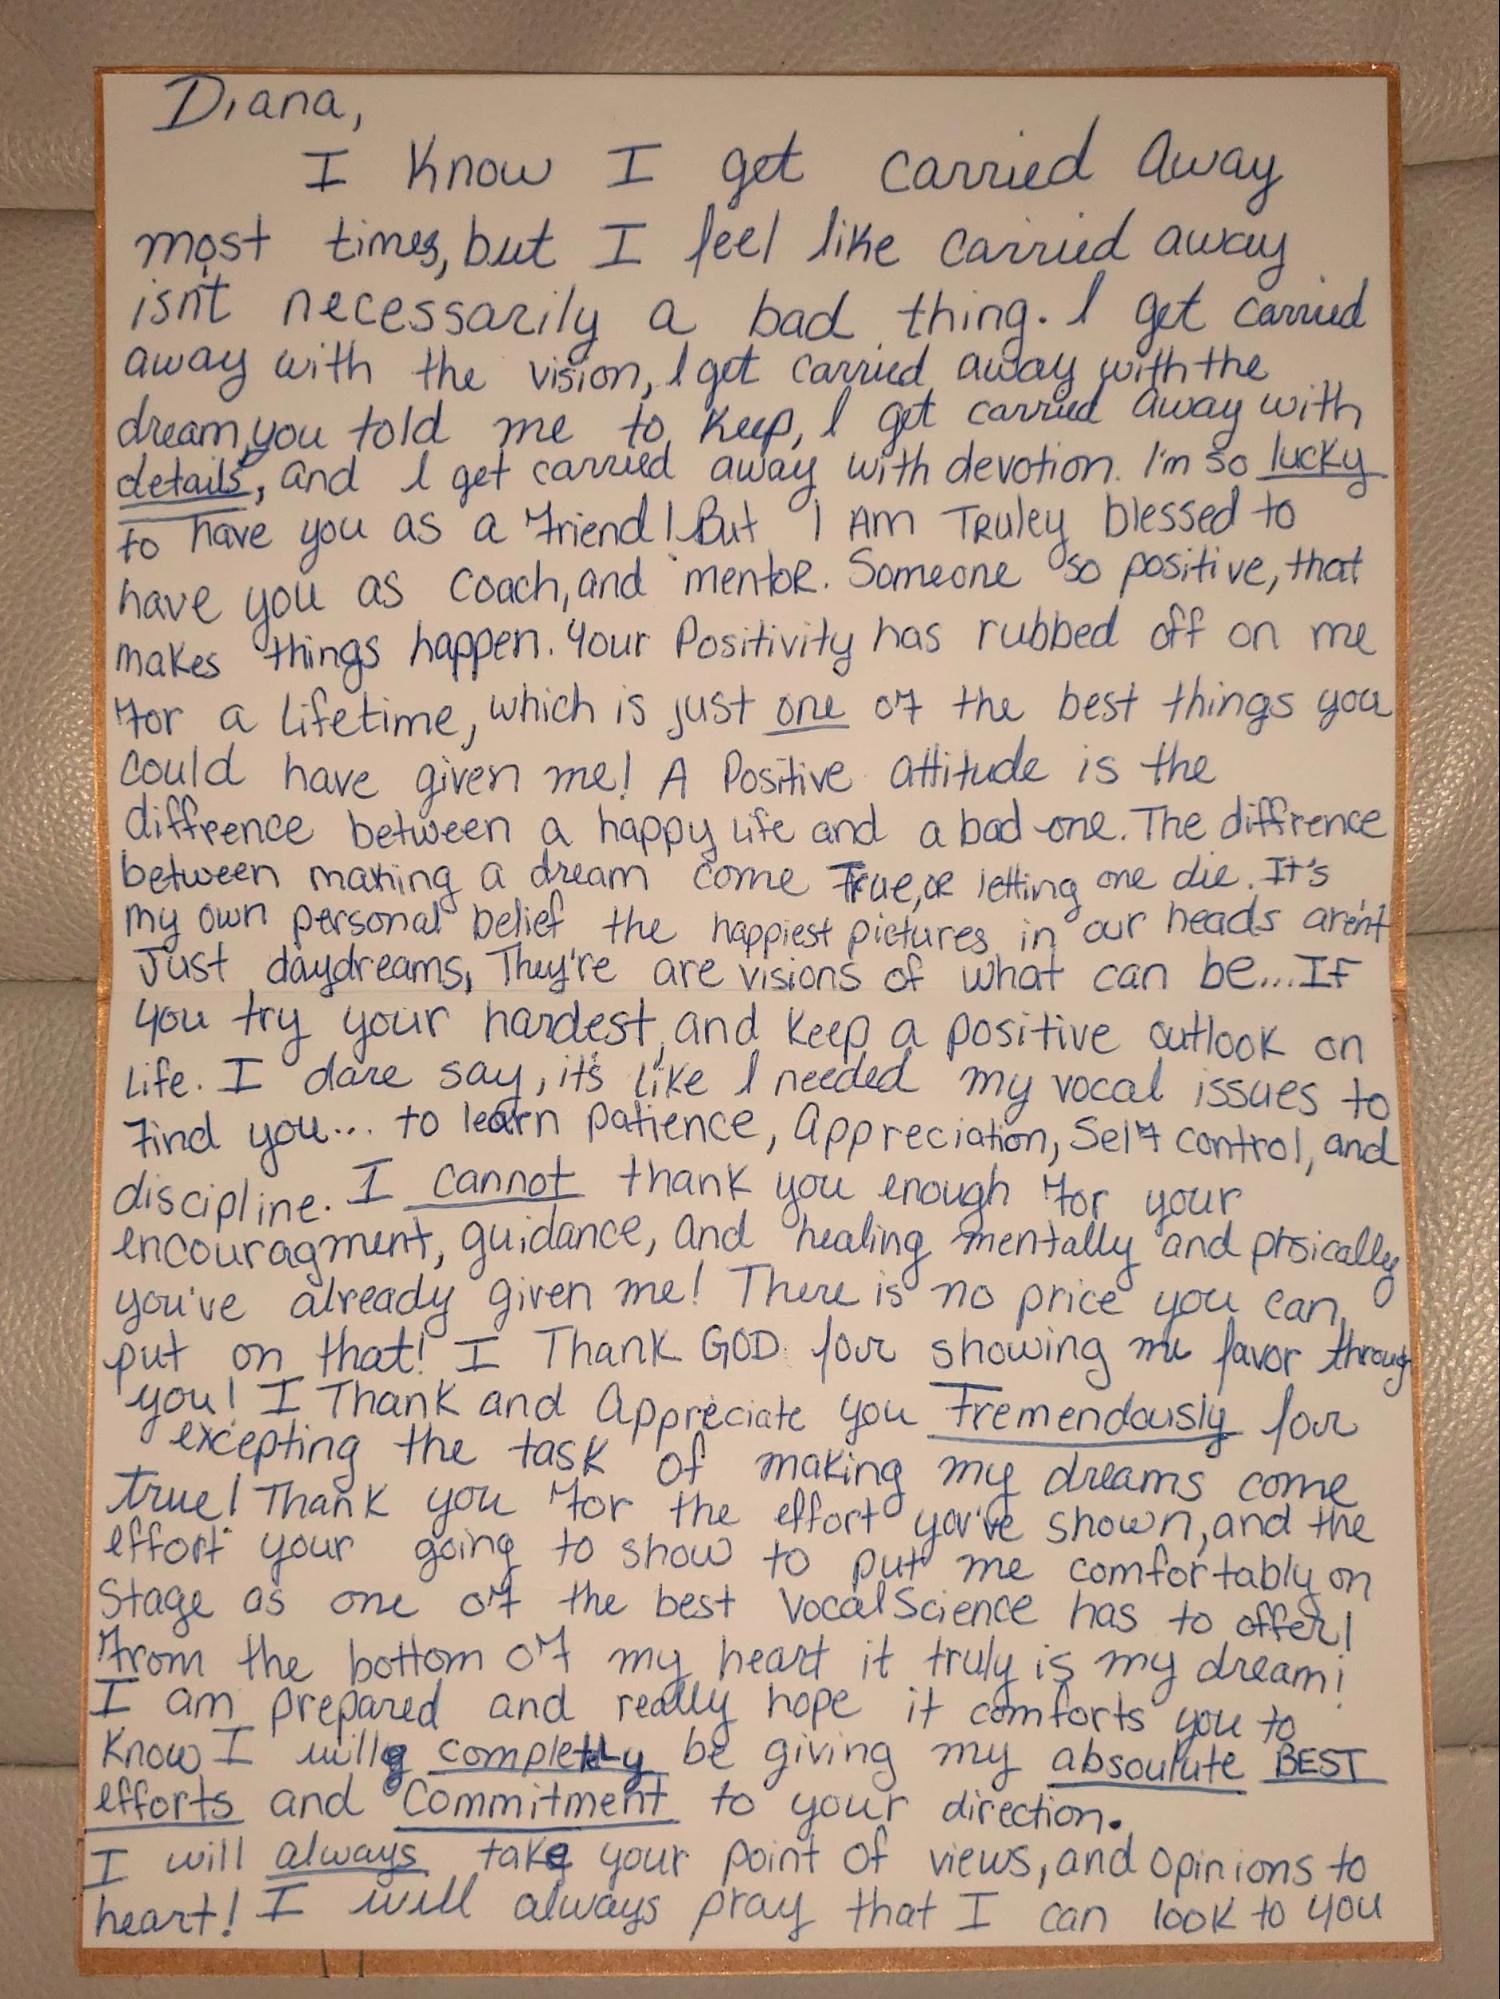 Diana,
I Know I get carried away
most times, but I feel like carried away
isn't necessarily a bad thing. I get carried
away with the vision, I get carried away with the
dream you told me to keep, I get carried away with
details, and I get carried away with devotion. I'm so lucky
to have you as a friend! But I AM Truley blessed to
have you as coach, and mentor. Someone so positive, that
makes things happen. Your Positivity has rubbed off on me
for a lifetime, which is just one of the best things you
could have given me! A Positive attitude is the
diffrence between a happy life and a bad one. The diffrence
between making a dream come True, or letting one die. It's
my own personal belief the happiest pictures in our heads aren't
Just daydreams, They're are visions of what can be... If
you try your hardest, and keep a positive outlook on
life. I dare say, it's like I needed my vocal issues to
find you... to learn patience, Appreciation, Self control, and
discipline. I cannot thank you enough for your
encouragment, guidance, and healing mentally and phsically
you've already given me! There is no price you can
put on that! I Thank GOD four showing me favor through
you! I Thank and Appreciate you Tremendously four
excepting the task of making my dreams come
true! Thank you for the effort you've shown, and the
effort your going to show to put me comfortably on
Stage as one of the best Vocal Science has to offer!
From the bottom of my heart it truly is my dream!
I am prepared and really hope it comforts you to
Know I will completly be giving my absoulute BEST
efforts and Commitment to your direction.
I will always take your point of views, and opinions to
heart! I will always pray that I can look to you